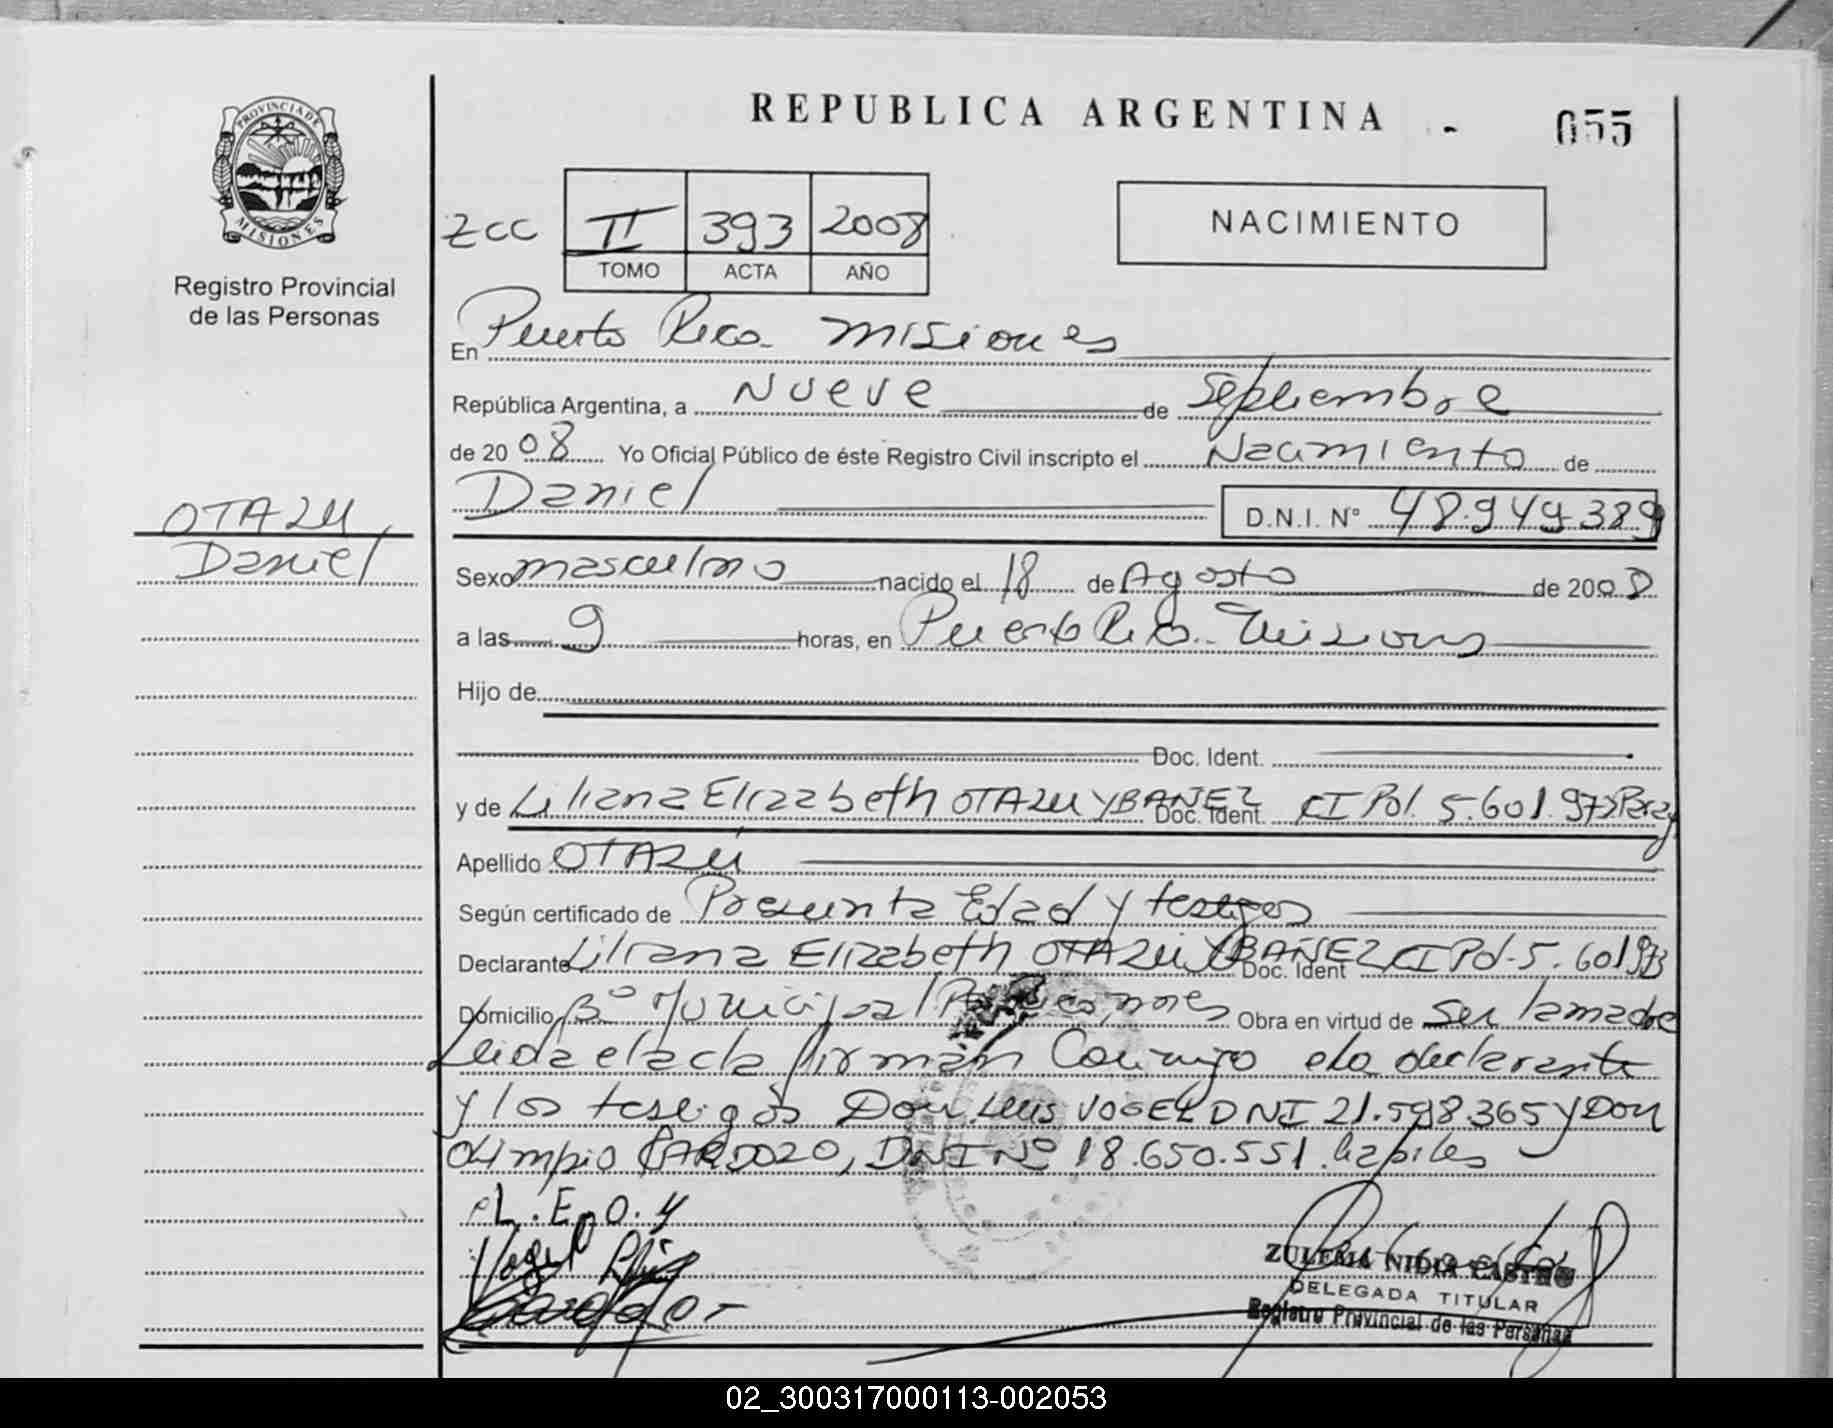 REPUBLICA ARGENTINA
055
PROVINCIA DE
MISIONES
Registro Provincial
de las Personas
zcc II 393 2008
TOMO ACTA AÑO
NACIMIENTO
En Puerto Rico Misiones
República Argentina, a Nueve de Septiembre
de 2008 Yo Oficial Público de éste Registro Civil inscripto el Nacimiento de
Daniel D.N.I. N° 48.949.389
OTAZU,
Daniel
Sexo masculino nacido el 18 de Agosto de 2008
a las 9 horas, en Puerto Rico - Misiones
Hijo de
Doc. Ident.
y de Liliana Elizabeth OTAZU YBAÑEZ Doc. Ident. CI Pol. 5.601.973
Apellido OTAZÚ
Según certificado de Presunta Edad y testigos
Declarante Liliana Elizabeth OTAZU YBAÑEZ Doc. Ident CI Pol. 5.601973
Domicilio B° Municipal Obra en virtud de ser la madre
Leida el acta firman Conmigo ela declarante
y los testigos Don Luis VOGEL DNI 21.598.365 y Don
Olimpio CARDOZO, DNI N° 18.650.551. habiles
L.E.O.Y
Vogel Luis
ZULEMA NIDIA CASTRO
DELEGADA TITULAR
Registro Provincial de las Personas
02_300317000113-002053